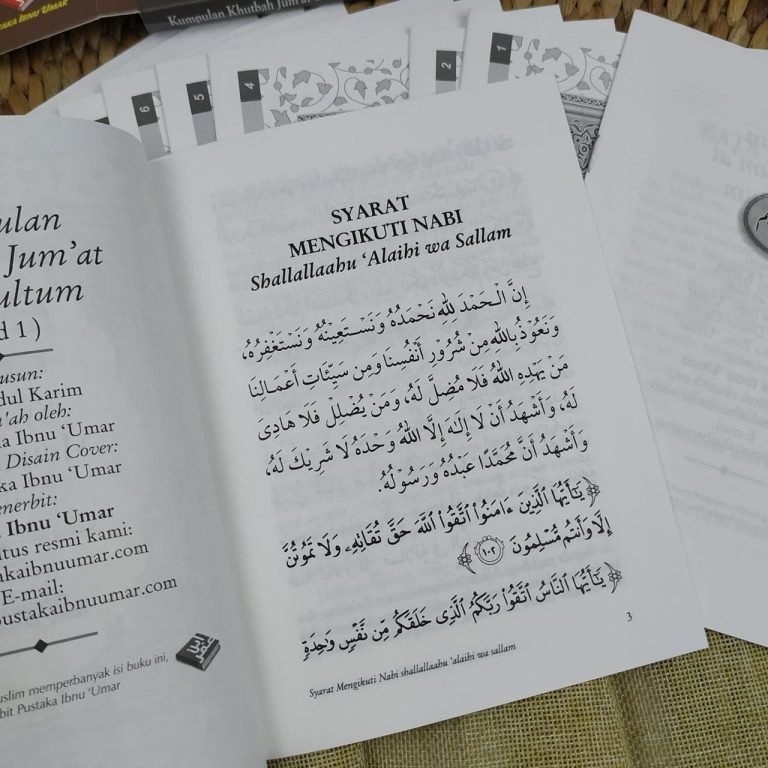 TAKA IBNU 'UMAR
Kumpulan Khutbah Jum'at
6
5
4
2
1
ulan
Jum'at
ultum
d 1)
usun:
dul Karim
a'ah oleh:
ka Ibnu 'Umar
Disain Cover:
aka Ibnu 'Umar
enerbit:
Ibnu 'Umar
itus resmi kami:
takaibnuumar.com
E-mail:
pustakaibnuumar.com
uslim memperbanyak isi buku ini,
bit Pustaka Ibnu 'Umar
SYARAT
MENGIKUTI NABI
Shallallaahu 'Alaihi wa Sallam
إِنَّ الْحَمْدَ لِلّٰهِ نَحْمَدُهُ وَنَسْتَعِيْنُهُ وَنَسْتَغْفِرُهُ،
وَنَعُوْذُ بِاللهِ مِنْ شُرُوْرِ أَنْفُسِنَا وَمِنْ سَيِّئَاتِ أَعْمَالِنَا
مَنْ يَهْدِهِ اللهُ فَلَا مُضِلَّ لَهُ، وَمَنْ يُضْلِلْ فَلَا هَادِيَ
لَهُ، وَأَشْهَدُ أَنْ لَا إِلَهَ إِلَّا اللهُ وَحْدَهُ لَا شَرِيْكَ لَهُ،
وَأَشْهَدُ أَنَّ مُحَمَّدًا عَبْدُهُ وَرَسُوْلُهُ.
﴿يَٰٓأَيُّهَا ٱلَّذِينَ ءَامَنُوا۟ ٱتَّقُوا۟ ٱللَّهَ حَقَّ تُقَاتِهِۦ وَلَا تَمُوتُنَّ
إِلَّا وَأَنتُم مُّسْلِمُونَ ١٠٢﴾
﴿يَٰٓأَيُّهَا ٱلنَّاسُ ٱتَّقُوا۟ رَبَّكُمُ ٱلَّذِى خَلَقَكُم مِّن نَّفْسٍ وَٰحِدَةٍ
3
Syarat Mengikuti Nabi shallallaahu 'alaihi wa sallam